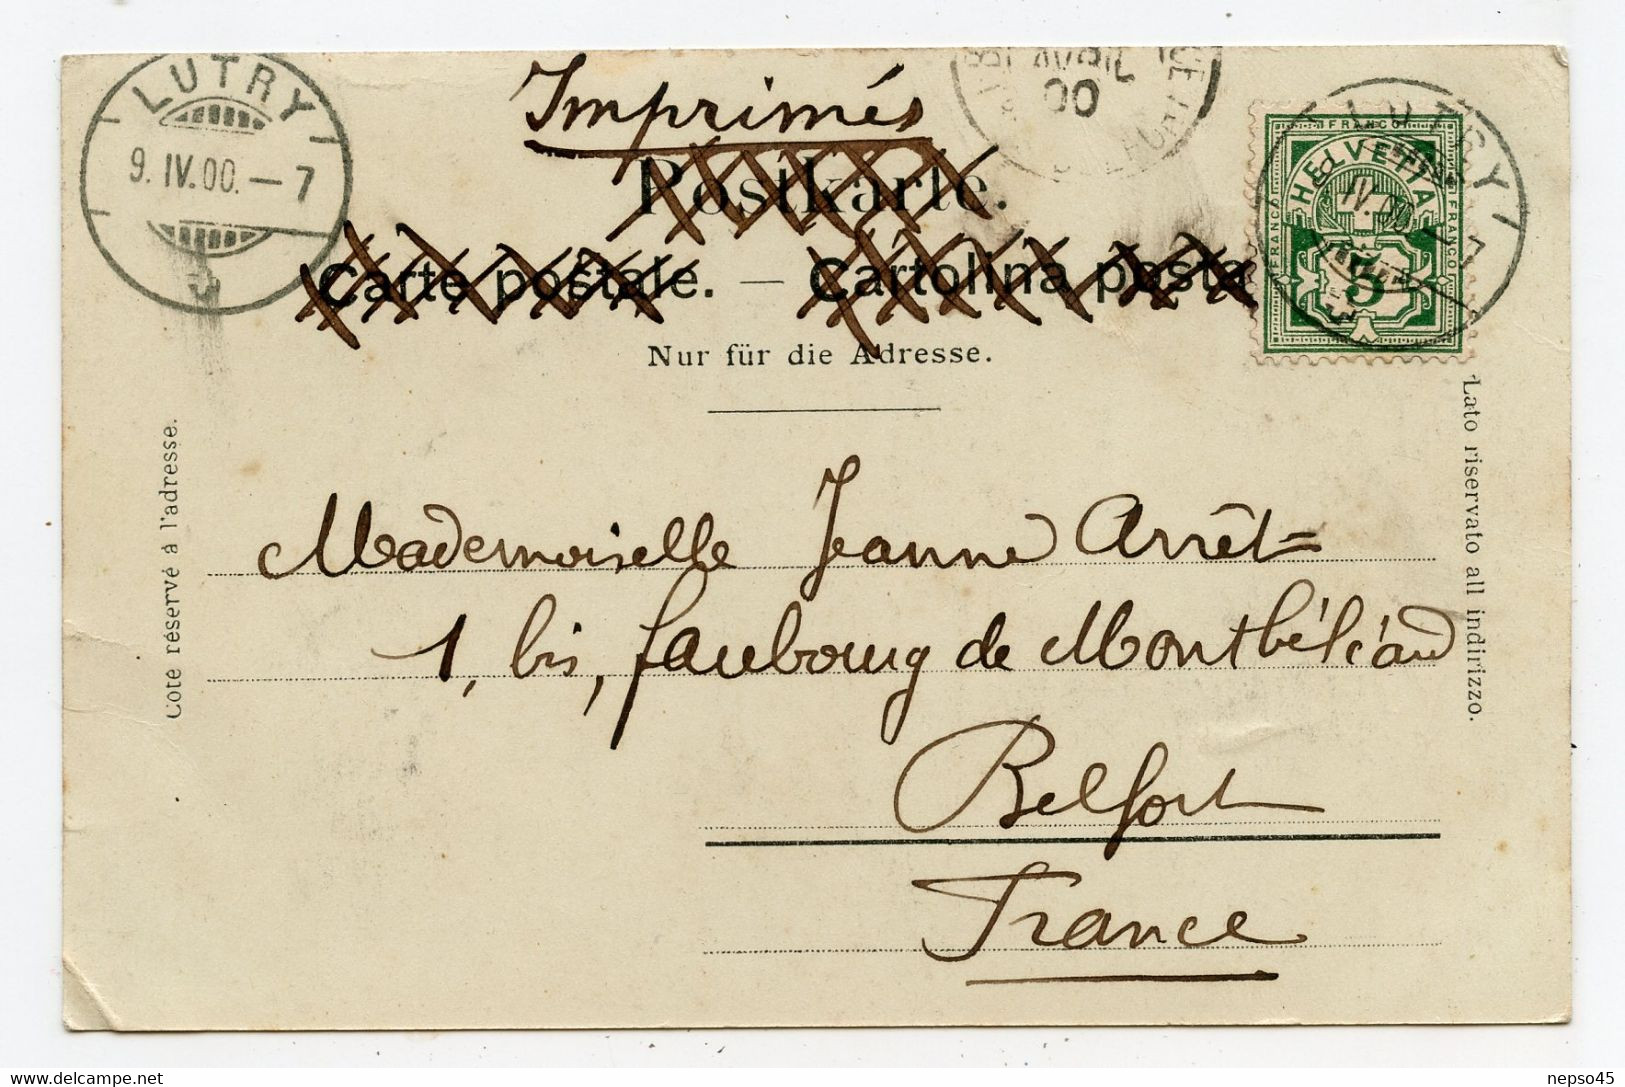 LUTRY
9. IV. 00. – 7
Imprimés
AVRIL
00
Postkarte.
Carte postale. — Cartolina posta
Nur für die Adresse.
FRANCO
HELVETIA
FRANCO
FRANCO
5
LUTRY
IV. 00 – 7
Côté réservé à l'adresse.
Lato riservato all indirizzo.
Mademoiselle Jeanne Arrêt
1, bis, faubourg de Montbéliard
Belfort
France
delcampe.net
nepso45